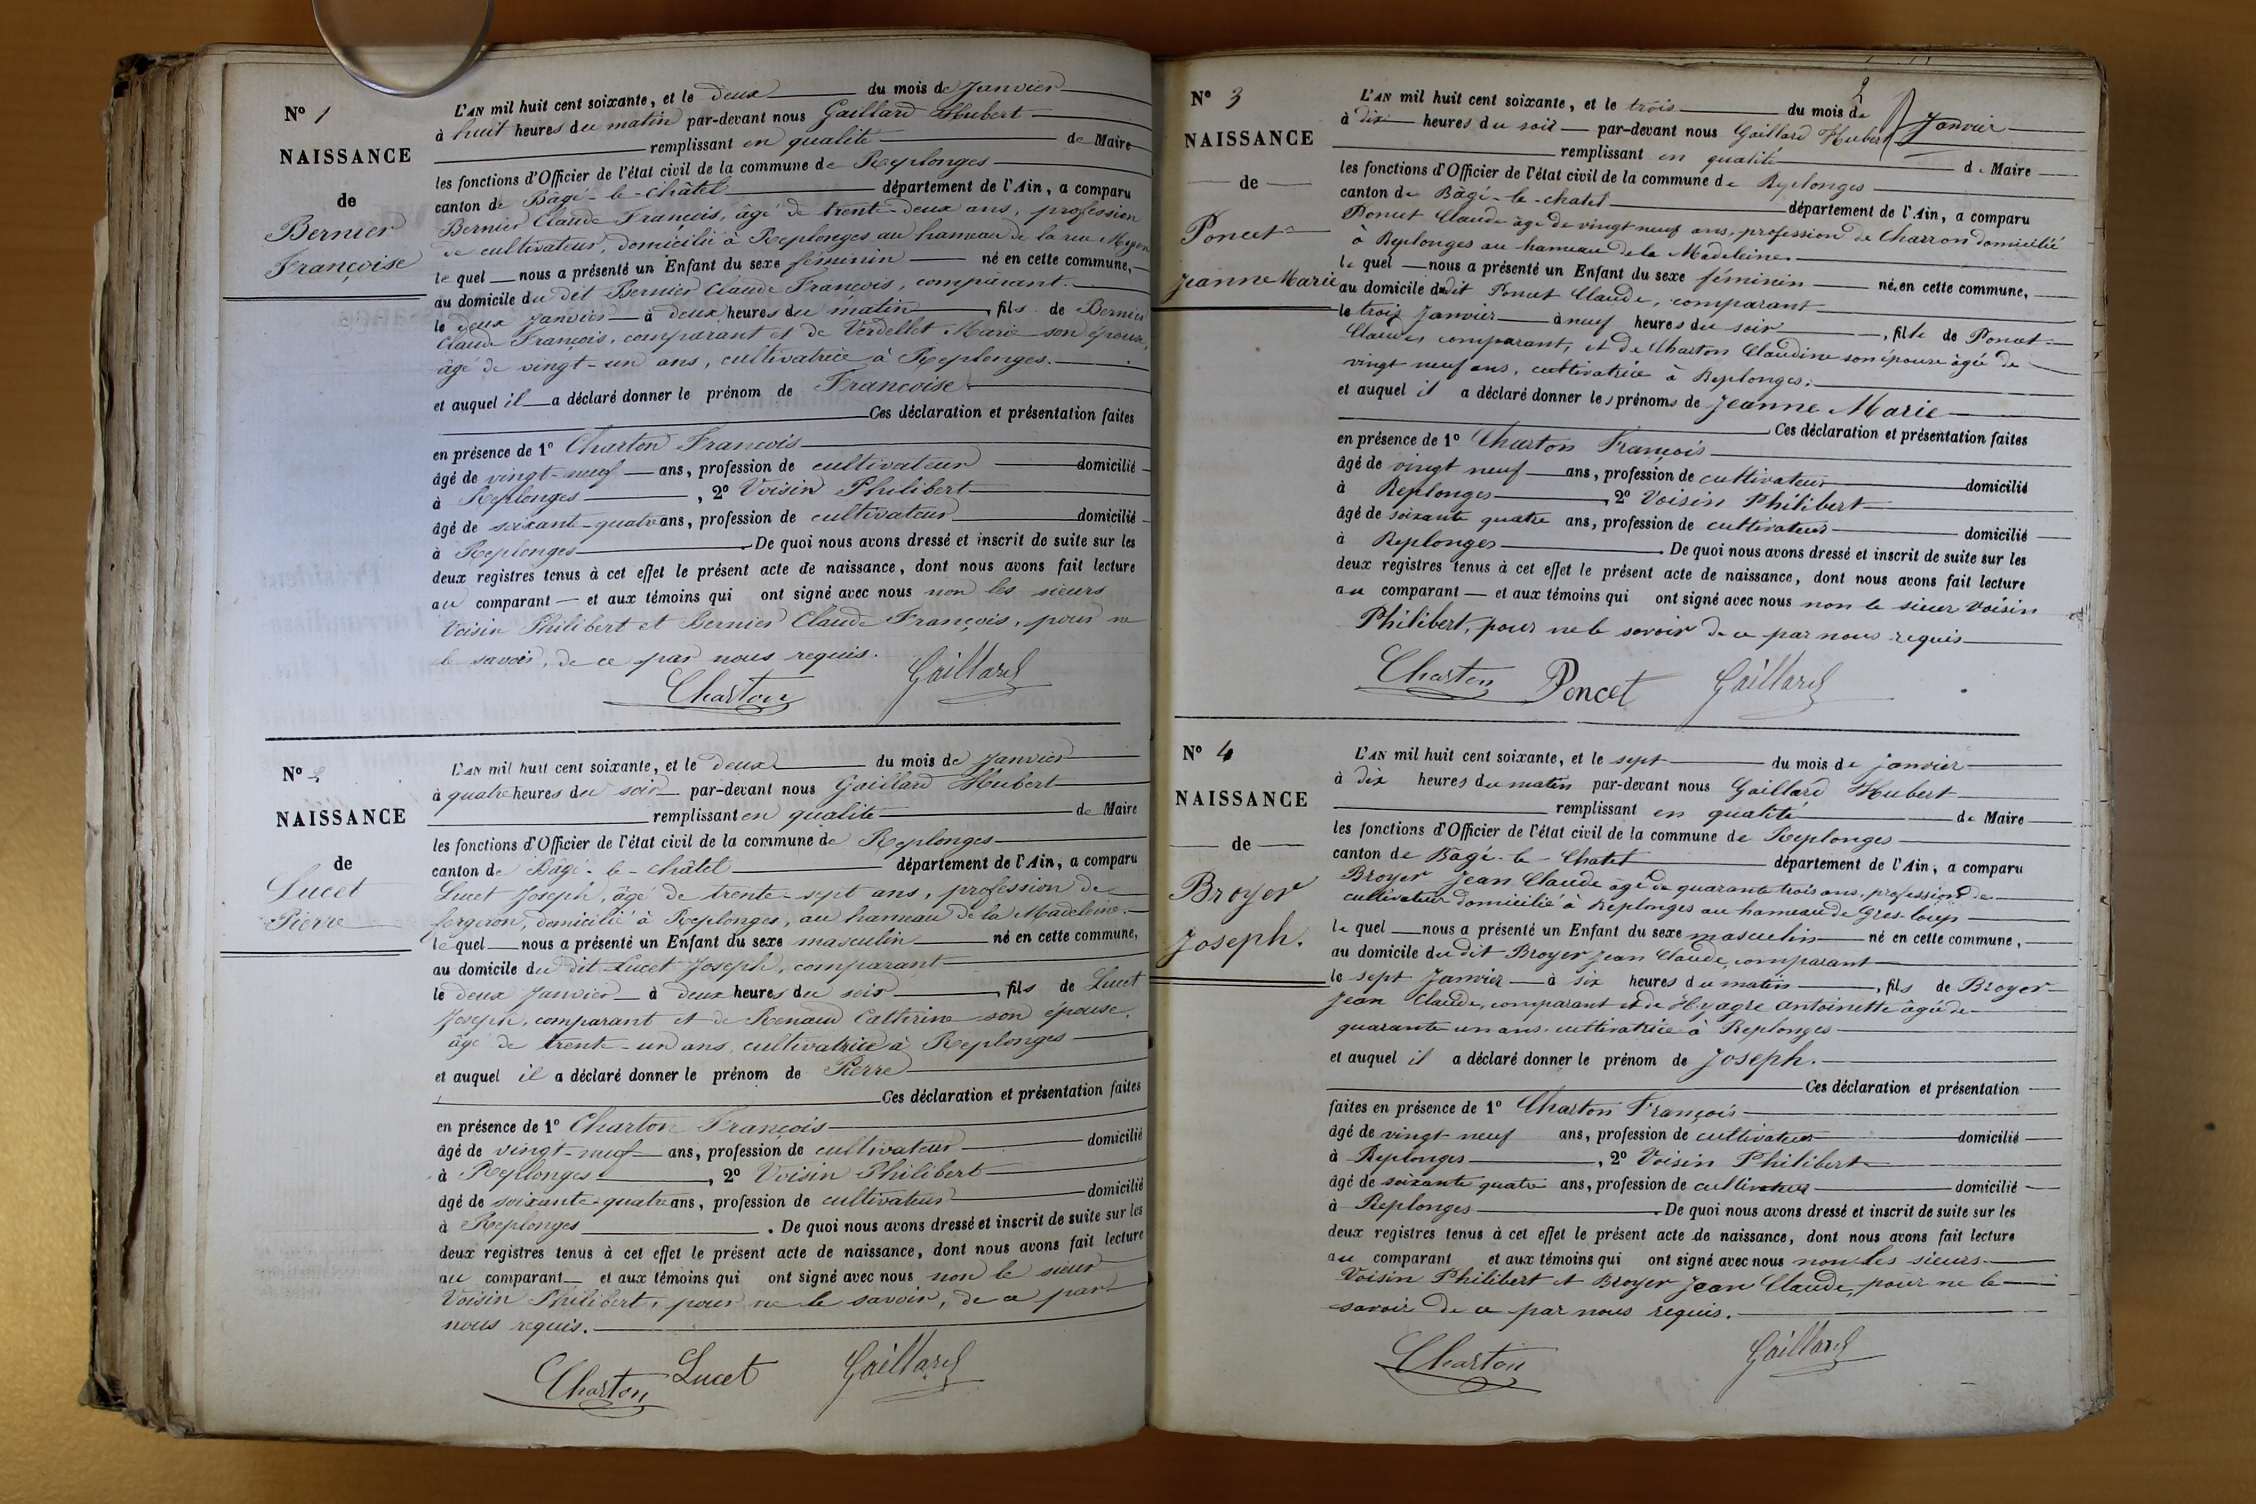 N° 1
NAISSANCE
de
Bernier
Françoise
L'AN mil huit cent soixante, et le deux du mois de Janvier
à huit heures du matin par-devant nous Gaillard Hubert
remplissant en qualité de Maire
les fonctions d'Officier de l'état civil de la commune de Replonges
canton de Bâgé-le-châtel département de l'Ain, a comparu
Bernier Claude François, âgé de trente-deux ans, profession
de cultivateur, domicilié à Replonges au hameau de la rue
le quel nous a présenté un Enfant du sexe féminin né en cette commune,
au domicile du dit Bernier Claude François, comparant.
le deux Janvier à deux heures du matin, fils de Bernier
Claude François, comparant et de Verdellet Marie son épouse,
âgé de vingt-un ans, cultivatrice à Replonges.
et auquel il a déclaré donner le prénom de Françoise
Ces déclaration et présentation faites
en présence de 1° Charton François
âgé de vingt-neuf ans, profession de cultivateur domicilié
à Replonges, 2° Voisin Philibert
âgé de soixante-quatre ans, profession de cultivateur domicilié
à Replonges. De quoi nous avons dressé et inscrit de suite sur les
deux registres tenus à cet effet le présent acte de naissance, dont nous avons fait lecture
au comparant et aux témoins qui ont signé avec nous non les sieurs
Voisin Philibert et Bernier Claude François, pour ne
le savoir, de ce par nous requis.
Charton Gaillard
N° 2
NAISSANCE
de
Lucet
Pierre
L'AN mil huit cent soixante, et le deux du mois de Janvier
à quatre heures du soir par-devant nous Gaillard Hubert
remplissant en qualité de Maire
les fonctions d'Officier de l'état civil de la commune de Replonges
canton de Bâgé-le-châtel département de l'Ain, a comparu
Lucet Joseph, âgé de trente-sept ans, profession de
forgeron, domicilié à Replonges, au hameau de la Madeleine.
le quel nous a présenté un Enfant du sexe masculin né en cette commune,
au domicile du dit Lucet Joseph, comparant
le deux Janvier à deux heures du soir, fils de Lucet
Joseph, comparant et de Renaud Catherine son épouse,
âgé de trente-un ans, cultivatrice à Replonges
et auquel il a déclaré donner le prénom de Pierre
Ces déclaration et présentation faites
en présence de 1° Charton François
âgé de vingt-neuf ans, profession de cultivateur domicilié
à Replonges, 2° Voisin Philibert
âgé de soixante-quatre ans, profession de cultivateur domicilié
à Replonges. De quoi nous avons dressé et inscrit de suite sur les
deux registres tenus à cet effet le présent acte de naissance, dont nous avons fait lecture
au comparant et aux témoins qui ont signé avec nous non le sieur
Voisin Philibert, pour ne le savoir, de ce par
nous requis.
Charton Lucet Gaillard
2
N° 3
NAISSANCE
de
Poncet
Jeanne Marie
L'AN mil huit cent soixante, et le trois du mois de Janvier
à dix heures du soir par-devant nous Gaillard Hubert
remplissant en qualité de Maire
les fonctions d'Officier de l'état civil de la commune de Replonges
canton de Bâgé-le-chatel département de l'Ain, a comparu
Poncet Claude âgé de vingt neuf ans, profession de Charron domicilié
à Replonges au hameau de la Madeleine
le quel nous a présenté un Enfant du sexe féminin né en cette commune,
au domicile dudit Poncet Claude, comparant
le trois Janvier à neuf heures du soir, fille de Poncet
Claude, comparant, et de Charton Claudine son épouse âgée de
vingt neuf ans, cultivatrice à Replonges.
et auquel il a déclaré donner les prénoms de Jeanne Marie
Ces déclaration et présentation faites
en présence de 1° Charton François
âgé de vingt neuf ans, profession de cultivateur domicilié
à Replonges, 2° Voisin Philibert
âgé de soixante quatre ans, profession de cultivateur domicilié
à Replonges. De quoi nous avons dressé et inscrit de suite sur les
deux registres tenus à cet effet le présent acte de naissance, dont nous avons fait lecture
au comparant et aux témoins qui ont signé avec nous non le sieur Voisin
Philibert, pour ne le savoir de ce par nous requis
Charton Poncet Gaillard
N° 4
NAISSANCE
de
Broyer
Joseph.
L'AN mil huit cent soixante, et le sept du mois de janvier
à dix heures du matin par-devant nous Gaillard Hubert
remplissant en qualité de Maire
les fonctions d'Officier de l'état civil de la commune de Replonges
canton de Bâgé-le-Chatel département de l'Ain, a comparu
Broyer Jean Claude âgé de quarante trois ans, profession de
cultivateur domicilié à Replonges au hameau de Gres loup
le quel nous a présenté un Enfant du sexe masculin né en cette commune,
au domicile du dit Broyer Jean Claude, comparant
le sept Janvier à six heures du matin, fils de Broyer
Jean Claude, comparant et de Hyagre Antoinette âgée de
quarante un ans, cultivatrice à Replonges
et auquel il a déclaré donner le prénom de Joseph.
Ces déclaration et présentation
faites en présence de 1° Charton François
âgé de vingt-neuf ans, profession de cultivateur domicilié
à Replonges, 2° Voisin Philibert
âgé de soixante quatre ans, profession de cultivateur domicilié
à Replonges. De quoi nous avons dressé et inscrit de suite sur les
deux registres tenus à cet effet le présent acte de naissance, dont nous avons fait lecture
au comparant et aux témoins qui ont signé avec nous non les sieurs
Voisin Philibert et Broyer Jean Claude, pour ne le
savoir de ce par nous requis.
Charton Gaillard